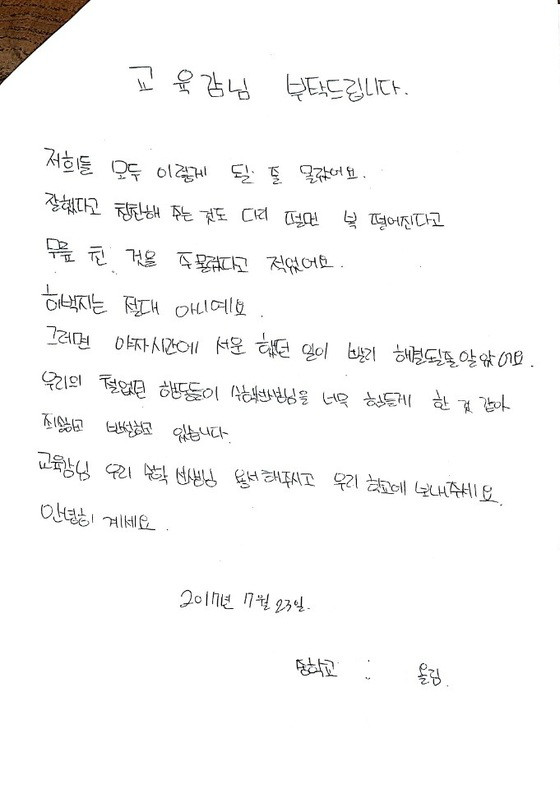 교육감님 부탁드립니다.
저희들 모두 이렇게 될 줄 몰랐어요.
잘했다고 칭찬해 주는 것도 다리 떨면 복 떨어진다고
무릎 친 것을 주물렀다고 적었어요.
허벅지는 절대 아니예요.
그러면 야자시간에 서운 했던 일이 빨리 해결될줄 알았어요.
우리의 철없던 행동들이 수학선생님을 너무 힘들게 한 것 같아
죄송하고 반성하고 있습니다.
교육감님 우리 수학 선생님 용서해주시고 우리 학교에 보내주세요.
안녕히 계세요.
2017년 7월 23일.
중학교 올림.